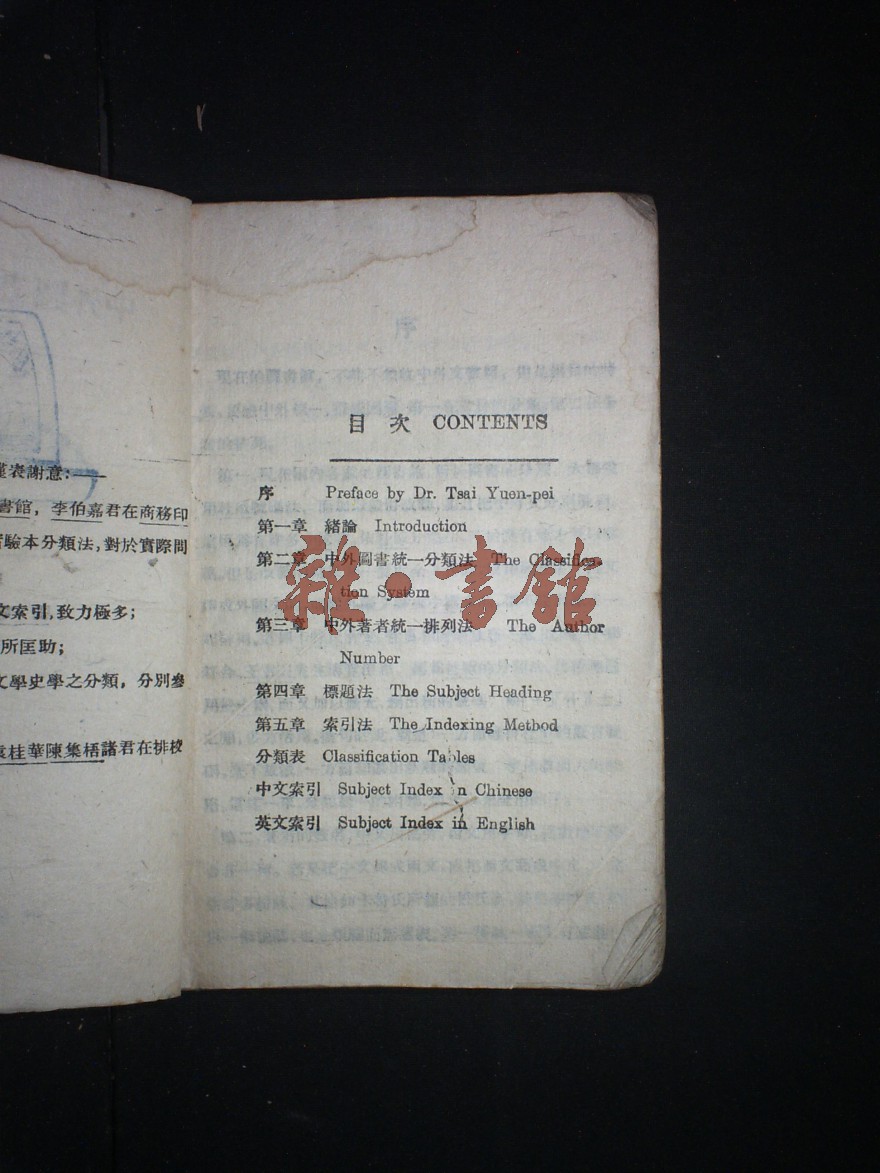 謹表謝意:——
書館，李伯嘉君在商務印
實驗本分類法，對於實際間
文索引，致力極多；
所匡助；
文學史學之分類，分別參
袁桂華陳集梧諸君在排校
目次 CONTENTS
序 Preface by Dr. Tsai Yuen-pei
第一章 緒論 Introduction
第二章 中外圖書統一分類法 The Classifica-
tion System
第三章 中外著者統一排列法 The Author
Number
第四章 標題法 The Subject Heading
第五章 索引法 The Indexing Method
分類表 Classification Tables
中文索引 Subject Index in Chinese
英文索引 Subject Index in English
雜·書館